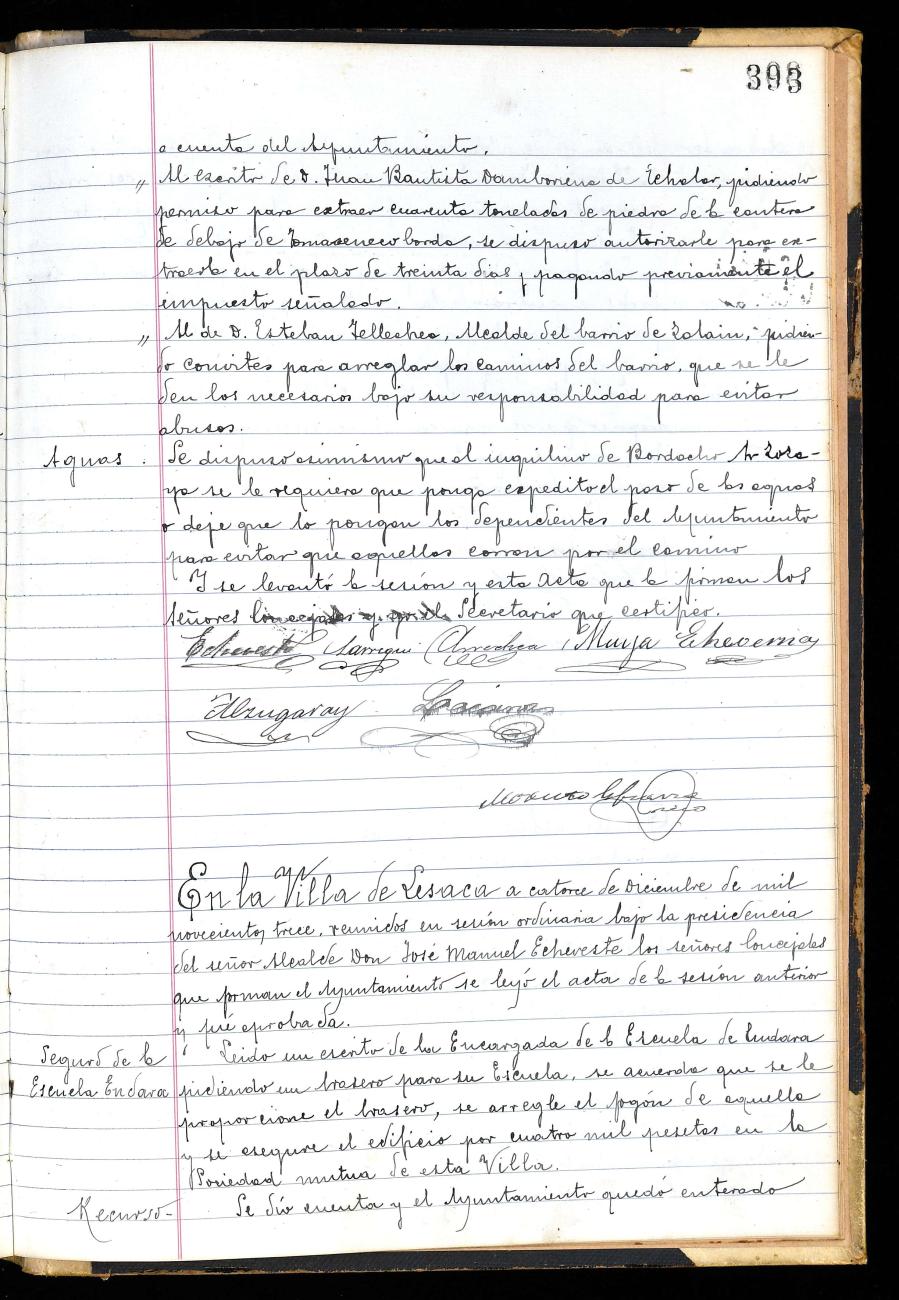 393
a cuenta del Ayuntamiento.
" Al escrito de D. Juan Bautista Damboriena de Echalar, pidiendo
permiso para extraer cuarenta toneladas de piedra de la cantera
de debajo de borda, se dispuso autorizarle para ex-
traerla en el plazo de treinta dias y pagando previamente el
impuesto señalado.
" Al de D. Esteban Tellechea, Alcalde del barrio de Zalain, pidien-
do convites para arreglar los caminos del barrio, que se le
den los necesarios bajo su responsabilidad para evitar
abusos.
Aguas. Se dispuso asimismo que al inquilino de Bordacho
ya se le requiera que ponga expedito el paso de las aguas
o deje que lo pongan los dependientes del Ayuntamiento
para evitar que aquellas corran por el camino
Y se levantó la sesión y esta Acta que la firman los
señores Concejales y Secretario que certifico.
Echeveste Larregui Arrechea Maya Echeverria
Alzugaray
En la Villa de Lesaca a catorce de Diciembre de mil
novecientos trece, reunidos en sesión ordinaria bajo la presidencia
del señor Alcalde Don José Manuel Echeveste los señores Concejales
que forman el Ayuntamiento se leyó el acta de la sesión anterior
y fué aprobada.
Seguro de la Escuela Endara
Leido un escrito de la Encargada de la Escuela de Endara
pidiendo un brasero para su Escuela, se acuerda que se le
proporcione el brasero, se arregle el fogón de aquella
y se asegure el edificio por cuatro mil pesetas en la
Sociedad mutua de esta Villa.
Recurso- Se dió cuenta y el Ayuntamiento quedó enterado